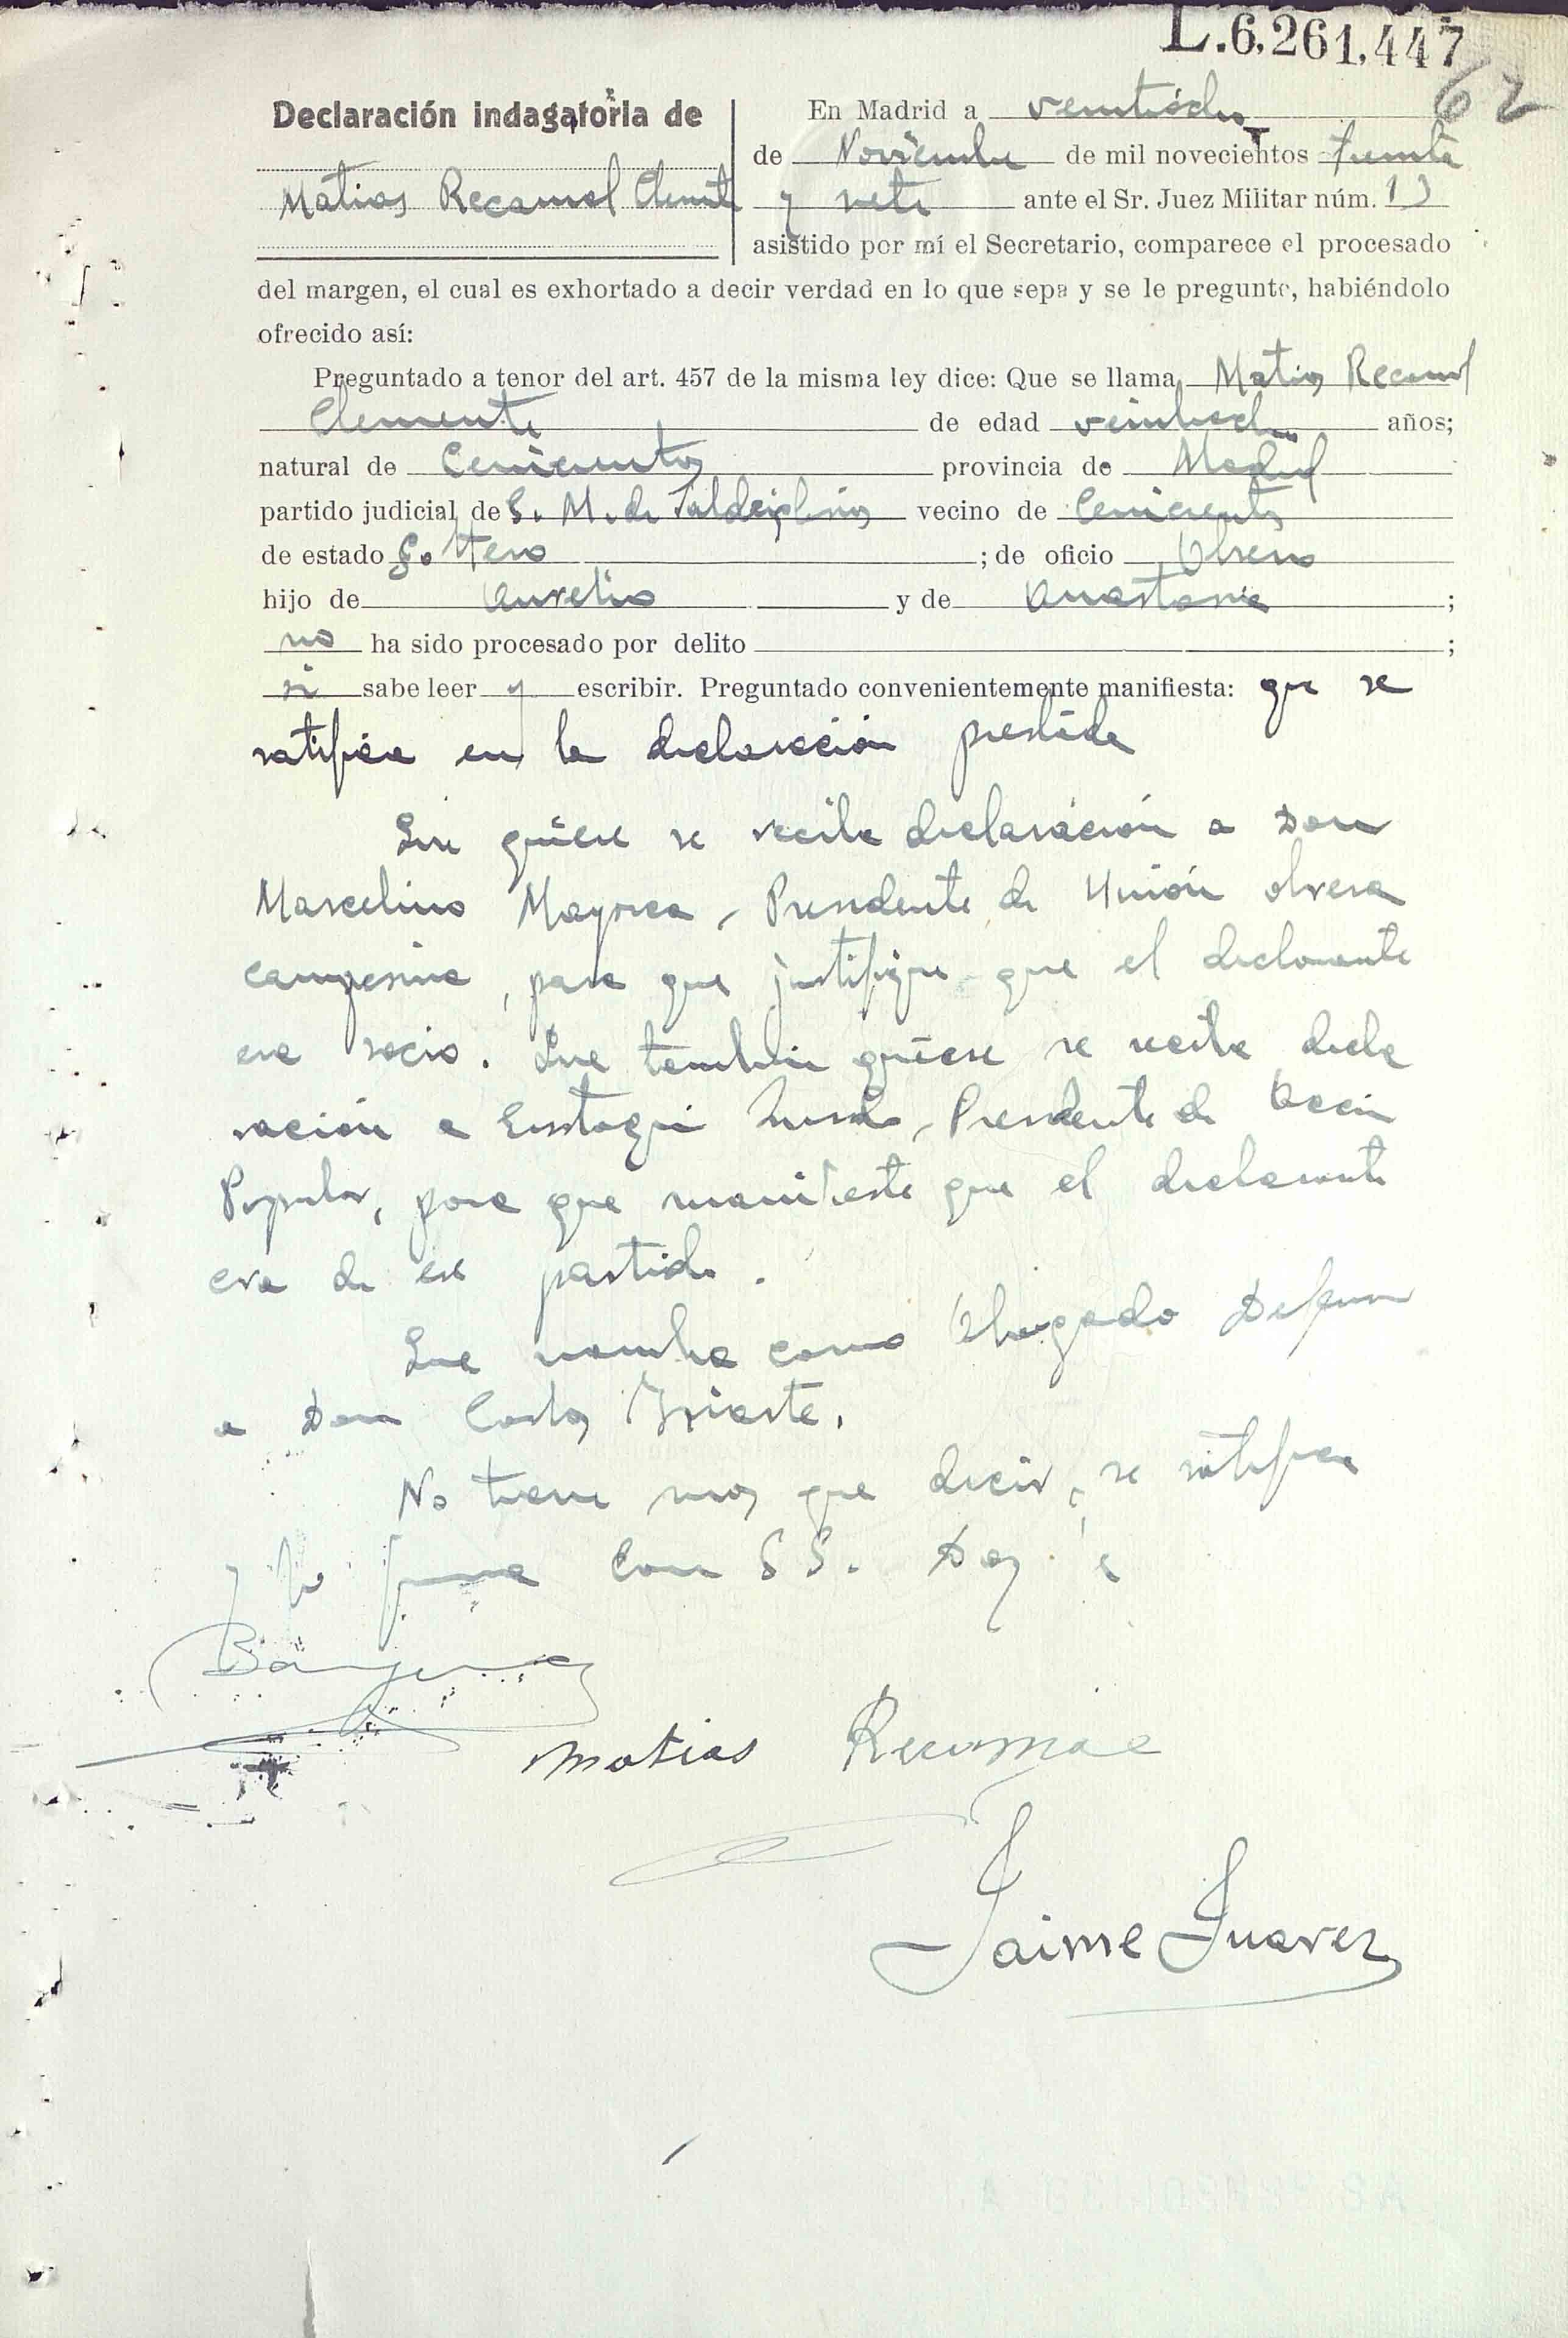 L.6,261,447
62
Declaración indagatoria de
Matias Recamal Clemente
En Madrid a veintiocho
de Noviembre de mil novecientos treinta
y siete ante el Sr. Juez Militar núm. 13
asistido por mí el Secretario, comparece el procesado
del margen, el cual es exhortado a decir verdad en lo que sepa y se le pregunte, habiéndolo
ofrecido así:
Preguntado a tenor del art. 457 de la misma ley dice: Que se llama Matias Recamal
Clemente de edad veintiocho años;
natural de Cenicientos provincia de Madrid
partido judicial de S. M. de Valdeiglesias vecino de Cenicientos
de estado Soltero ; de oficio Obrero
hijo de Aurelio y de Anastasia ;
no ha sido procesado por delito ;
si sabe leer y escribir. Preguntado convenientemente manifiesta: que se
ratifica en la declaración prestada
Que quiere se reciba declaración a Don
Marcelino Mayorca, Presidente de Unión obrera
campesina, para que justifique que el declarante
era socio. Que tambien quiere se reciba decla
ración a Eustaquio, Presidente de Acción
Popular, para que manifieste que el declarante
era de ese partido.
Que nombra como Abogado Defensor
a Don Carlos Iriarte.
No tiene mas que decir, se ratifica
y lo firma con S S. Doy fé
Matias Recamal
Jaime Juarez